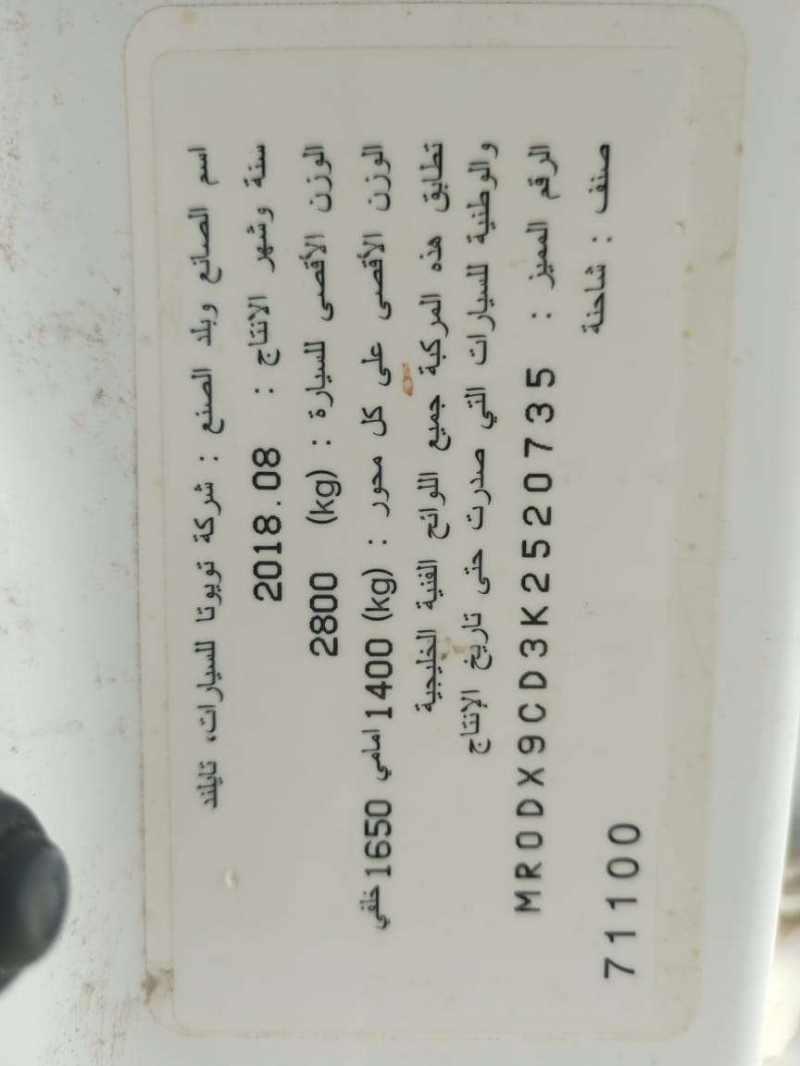 اسم الصانع وبلد الصنع : شركة تويوتا للسيارات، تايلند
سنة وشهر الانتاج : 2018.08
الوزن الأقصى للسيارة : (kg) 2800
الوزن الأقصى على كل محور : (kg) 1400 امامي 1650 خلفي
تطابق هذه المركبة جميع اللوائح الفنية الخليجية
والوطنية للسيارات التي صدرت حتى تاريخ الإنتاج
الرقم المميز : MR0DX9CD3K2520735
صنف : شاحنة
71100